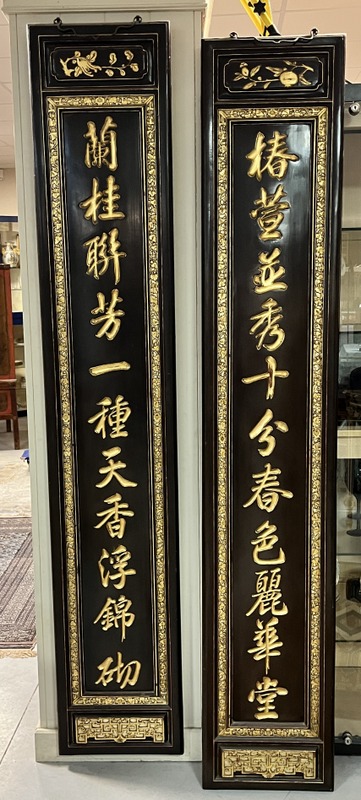 椿萱並秀十分春色麗華堂
蘭桂聯芳一種天香浮錦砌